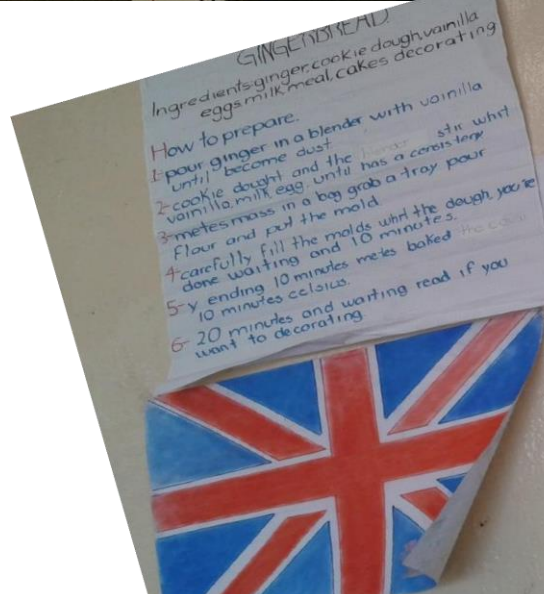 GINGERBREAD
Ingredients:ginger,cookie dough,vainilla
eggs,milk,meal,cakes decorating
How to prepare.
1-pour ginger in a blender with vainilla
until become dust
2-cookie dought and the stir whit
vainilla,milk,egg until has a consistery
3-metes mass in a bag grab a tray pour
flour and put the mold.
4-carefully fill the molds whit the dough, you're
done waiting and 10 minutes.
5-y ending 10 minutes metes baked
10 minutes celsius.
6-20 minutes and waiting read if you
want to decorating